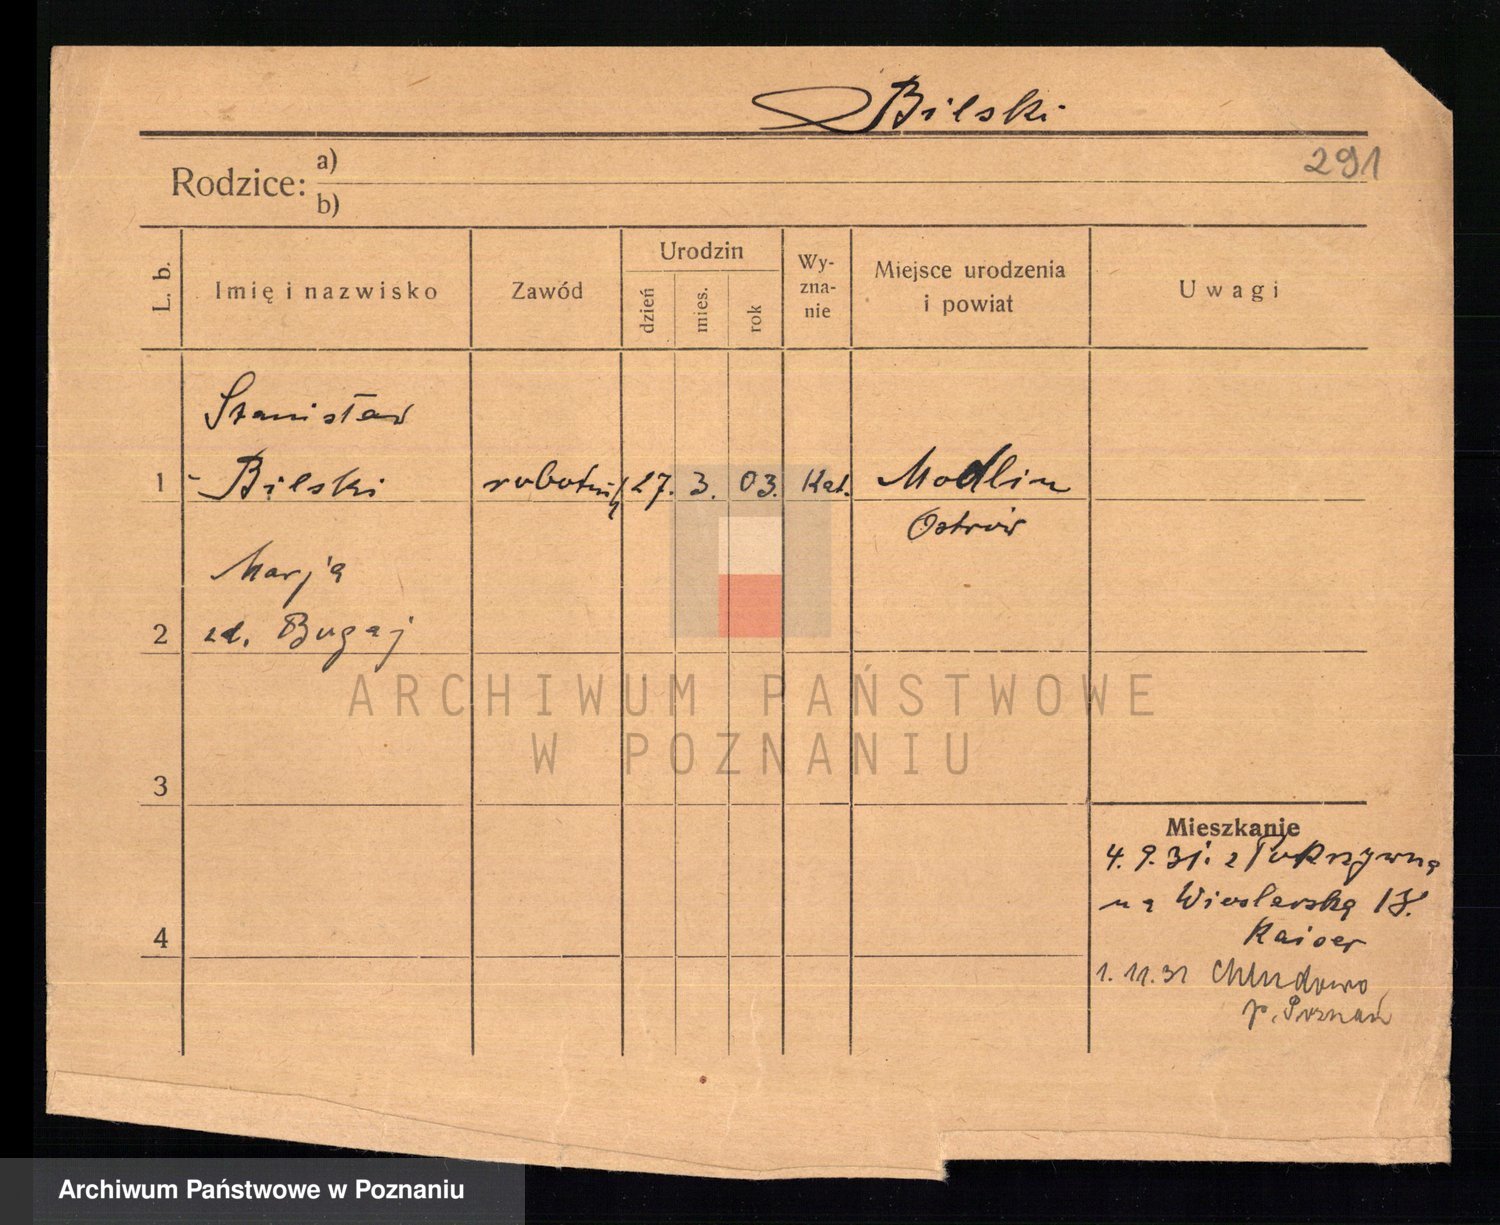 Bilski
291
Rodzice: a)
b)
L. b.
Imię i nazwisko
Zawód
Urodzin
dzień
mies.
rok
Wy-
zna-
nie
Miejsce urodzenia
i powiat
Uwagi
Stanisław
1 - Bilski robotnik 27. 3. 03. Kat. Modlin
Ostrów
Marja
2 zd. Bugaj
3
4
Mieszkanie
4. 9. 31. z Pokrzywna
na Wioślarską
Kaiser
1. 11. 31 Chludowo
p. Poznań
ARCHIWUM PAŃSTWOWE
W POZNANIU
Archiwum Państwowe w Poznaniu